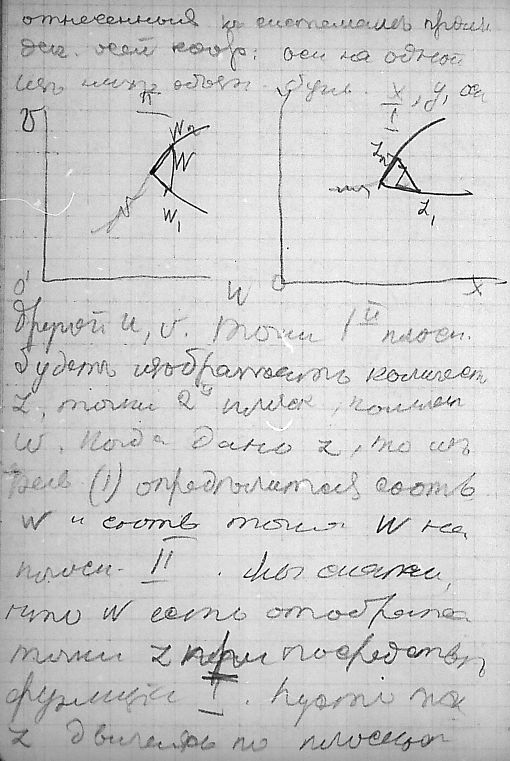 отнесенныя къ системамъ прям
дек. осей коор: оси на одной
изъ нихъ обозн. буд. x, y, ос
II
I
V
W2
W
W1
Z2
Z
Z1
O'
U
O
X
другой u, v. Точки 1й плоск.
будетъ изображать количест
Z, точки 2й плоск, колич
W. Когда дано Z, то изъ
рав (1) опредѣлится соотв
W и соотв точка W на
плоск. II. Мы скажем,
что W есть отображе
точки Z при посредствѣ
функціи I. Пусть точ
Z движется по плоскост